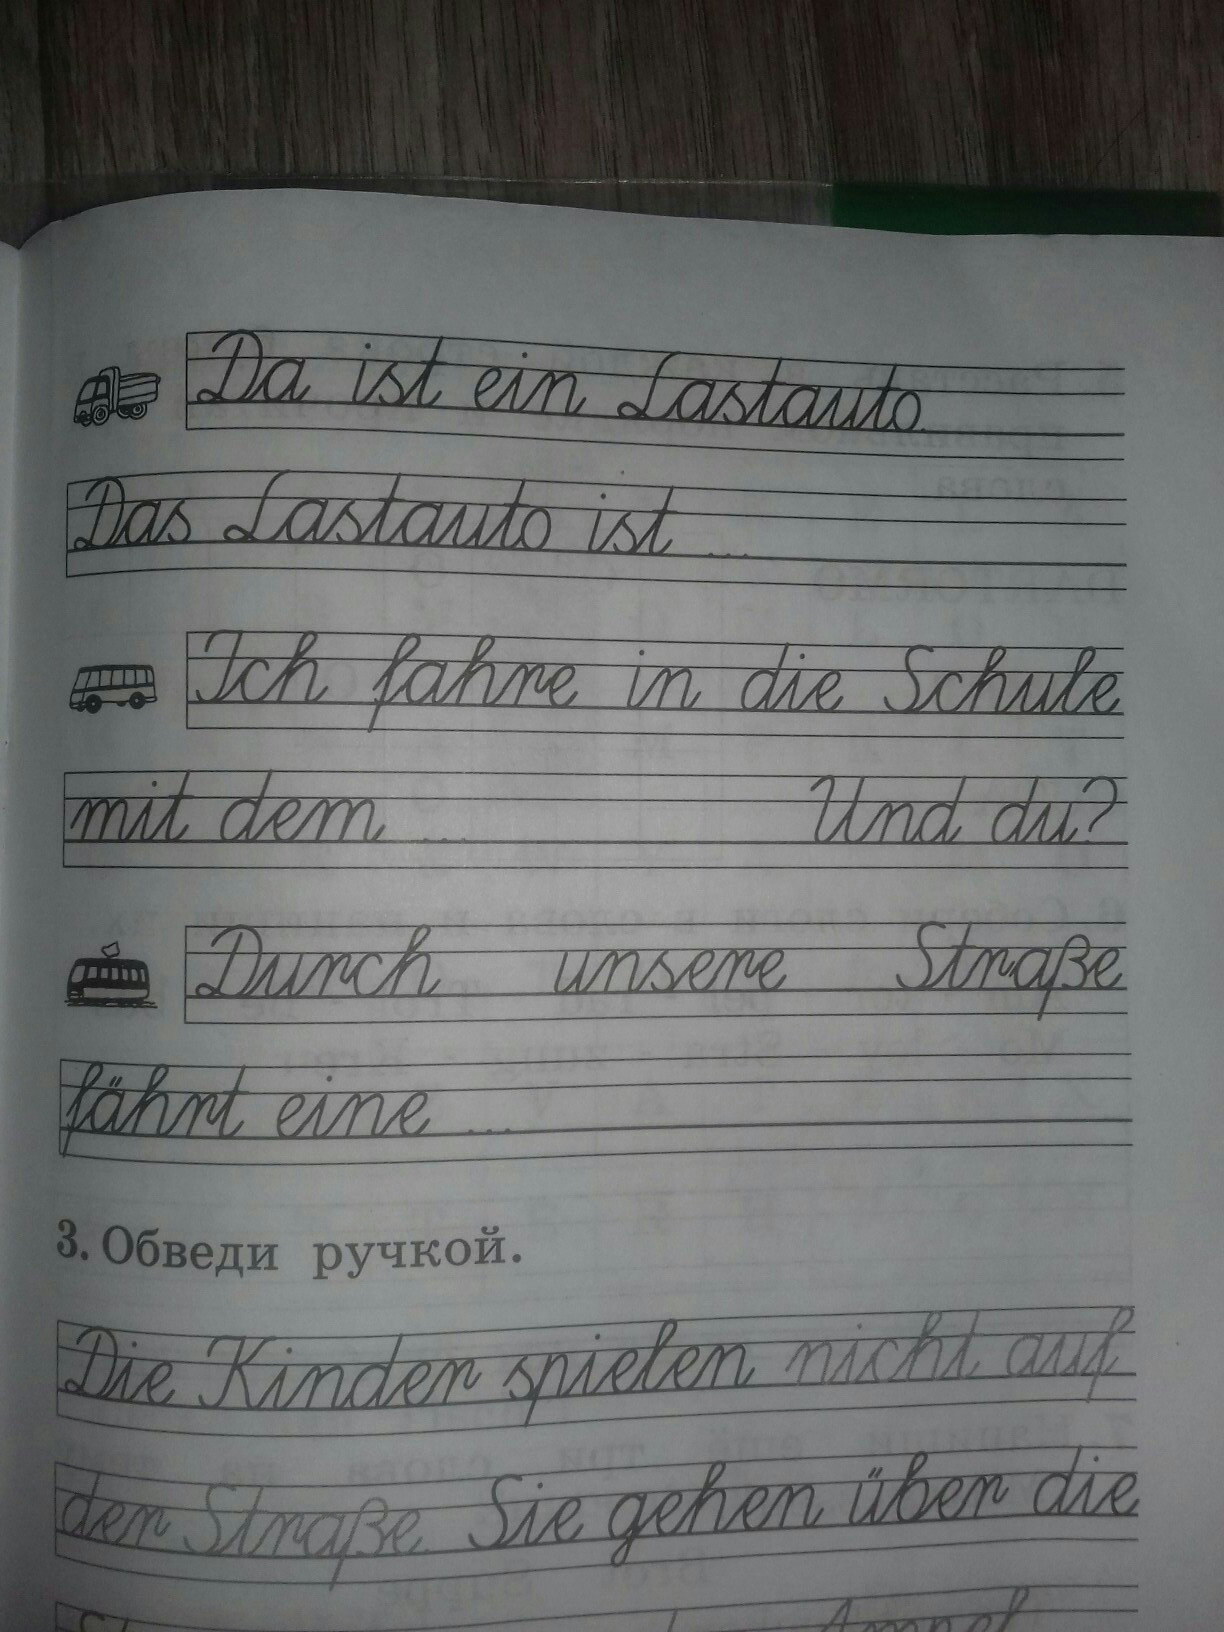 Da ist ein Lastauto.
Das Lastauto ist ...
Ich fahre in die Schule
mit dem ... Und du?
Durch unsere Straße
fährt eine ...
3. Обведи ручкой.
Die Kinder spielen nicht auf
der Straße. Sie gehen über die
Ampel